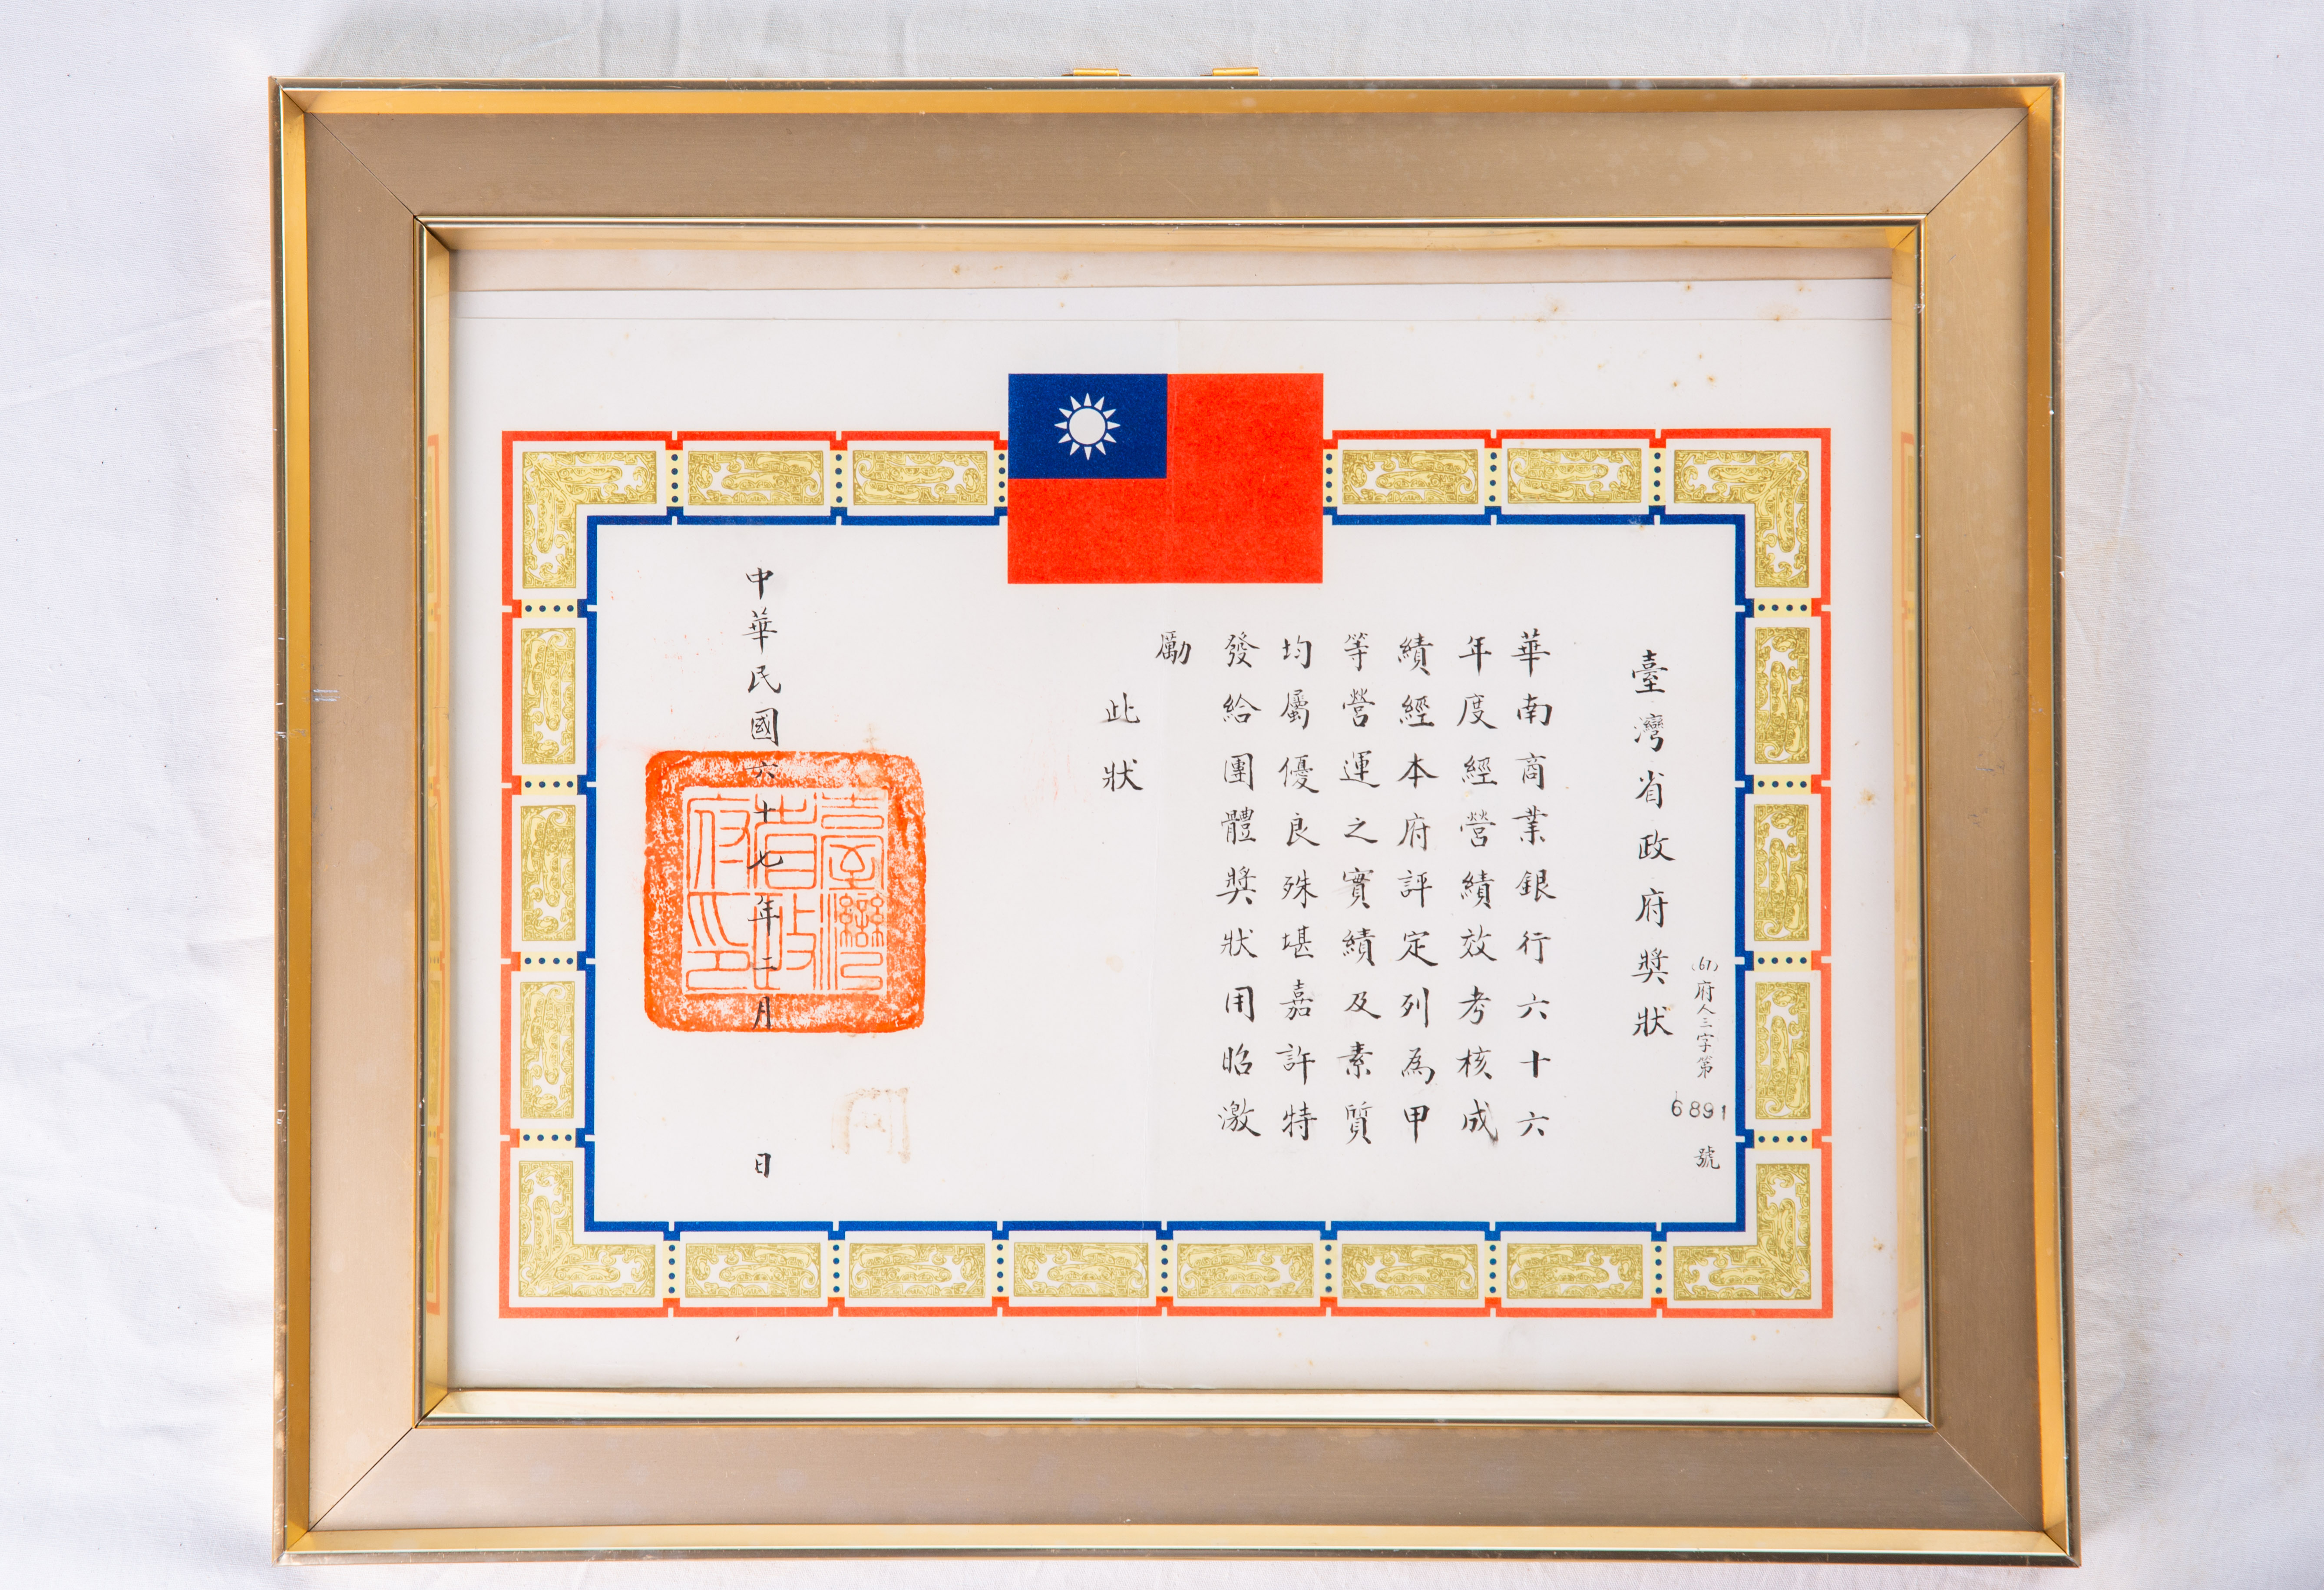 臺灣省政府獎狀
(67)府人三字第6891號
華南商業銀行六十六
年度經營績效考核成
績經本府評定列為甲
等營運之實績及素質
均屬優良殊堪嘉許特
發給團體獎狀用昭激
勵
此狀
中華民國六十七年二月 日
臺灣省政府印